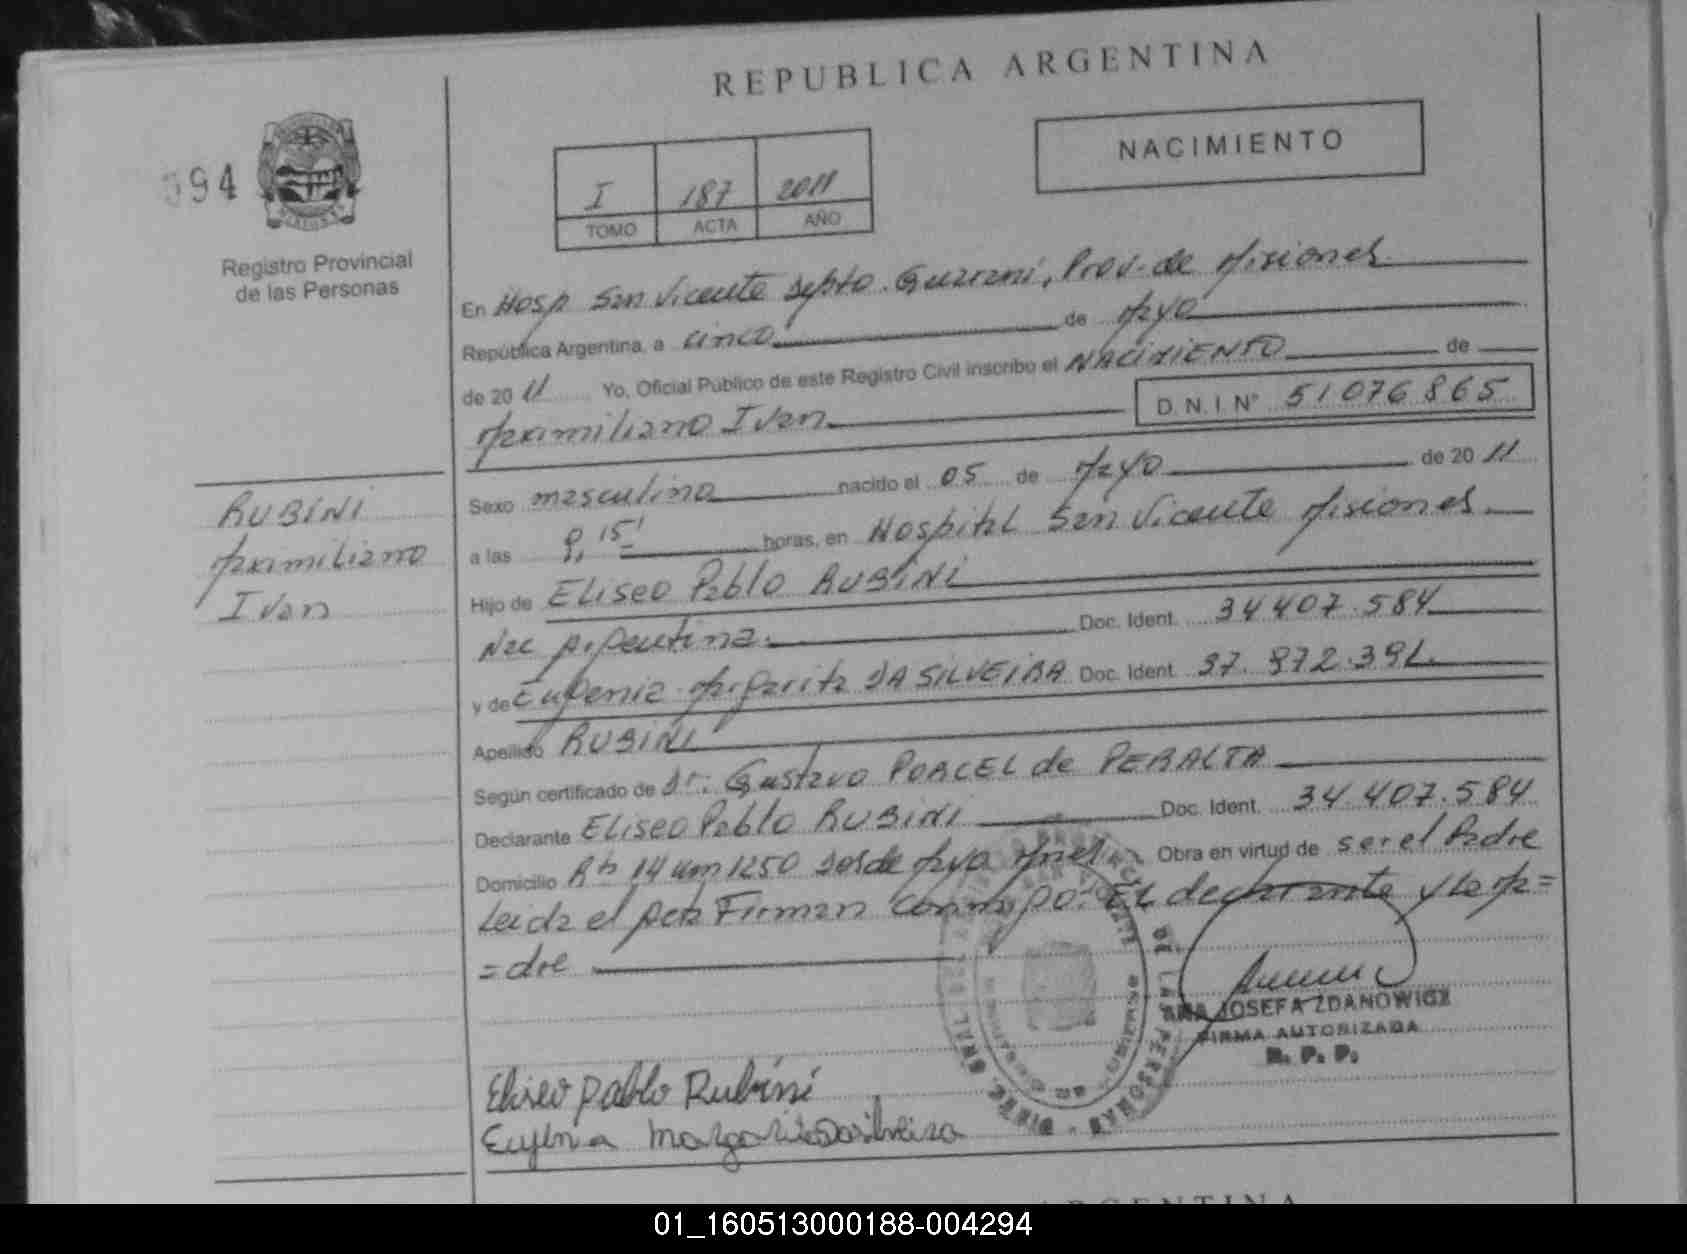 REPUBLICA ARGENTINA
NACIMIENTO
594
I 187 2011
TOMO ACTA AÑO
Registro Provincial
de las Personas
En Hosp San Vicente Dpto. Guaraní, Prov. de Misiones
República Argentina, a cinco de Mayo
de 2011 Yo, Oficial Público de este Registro Civil inscribo el NACIMIENTO de
Maximiliano Ivan D.N.I. Nº 51076865
Sexo masculino nacido el 05 de Mayo de 2011
a las 8,15' horas, en Hospital San Vicente Misiones
RUBINI
Maximiliano
Ivan
Hijo de Eliseo Pablo RUBINI
Nac Argentina. Doc. Ident. 34 407.584
y de Eugenia Margarita DA SILVEIRA Doc. Ident. 37.872.391
Apellido RUBINI
Según certificado de Dr. Gustavo PORCEL de PERALTA
Declarante Eliseo Pablo RUBINI Doc. Ident. 34 407.584
Domicilio Rta 14 Km 1250 de Mayo Mnes. Obra en virtud de ser el Padre
Leida el Acta Firman conmigo: El declarante y la Ma=
=dre
ANA JOSEFA ZDANOWICZ
FIRMA AUTORIZADA
R. P. P.
Eliseo Pablo Rubini
Eugenia Margarita Dasilveira
ARGENTINA
01_160513000188-004294